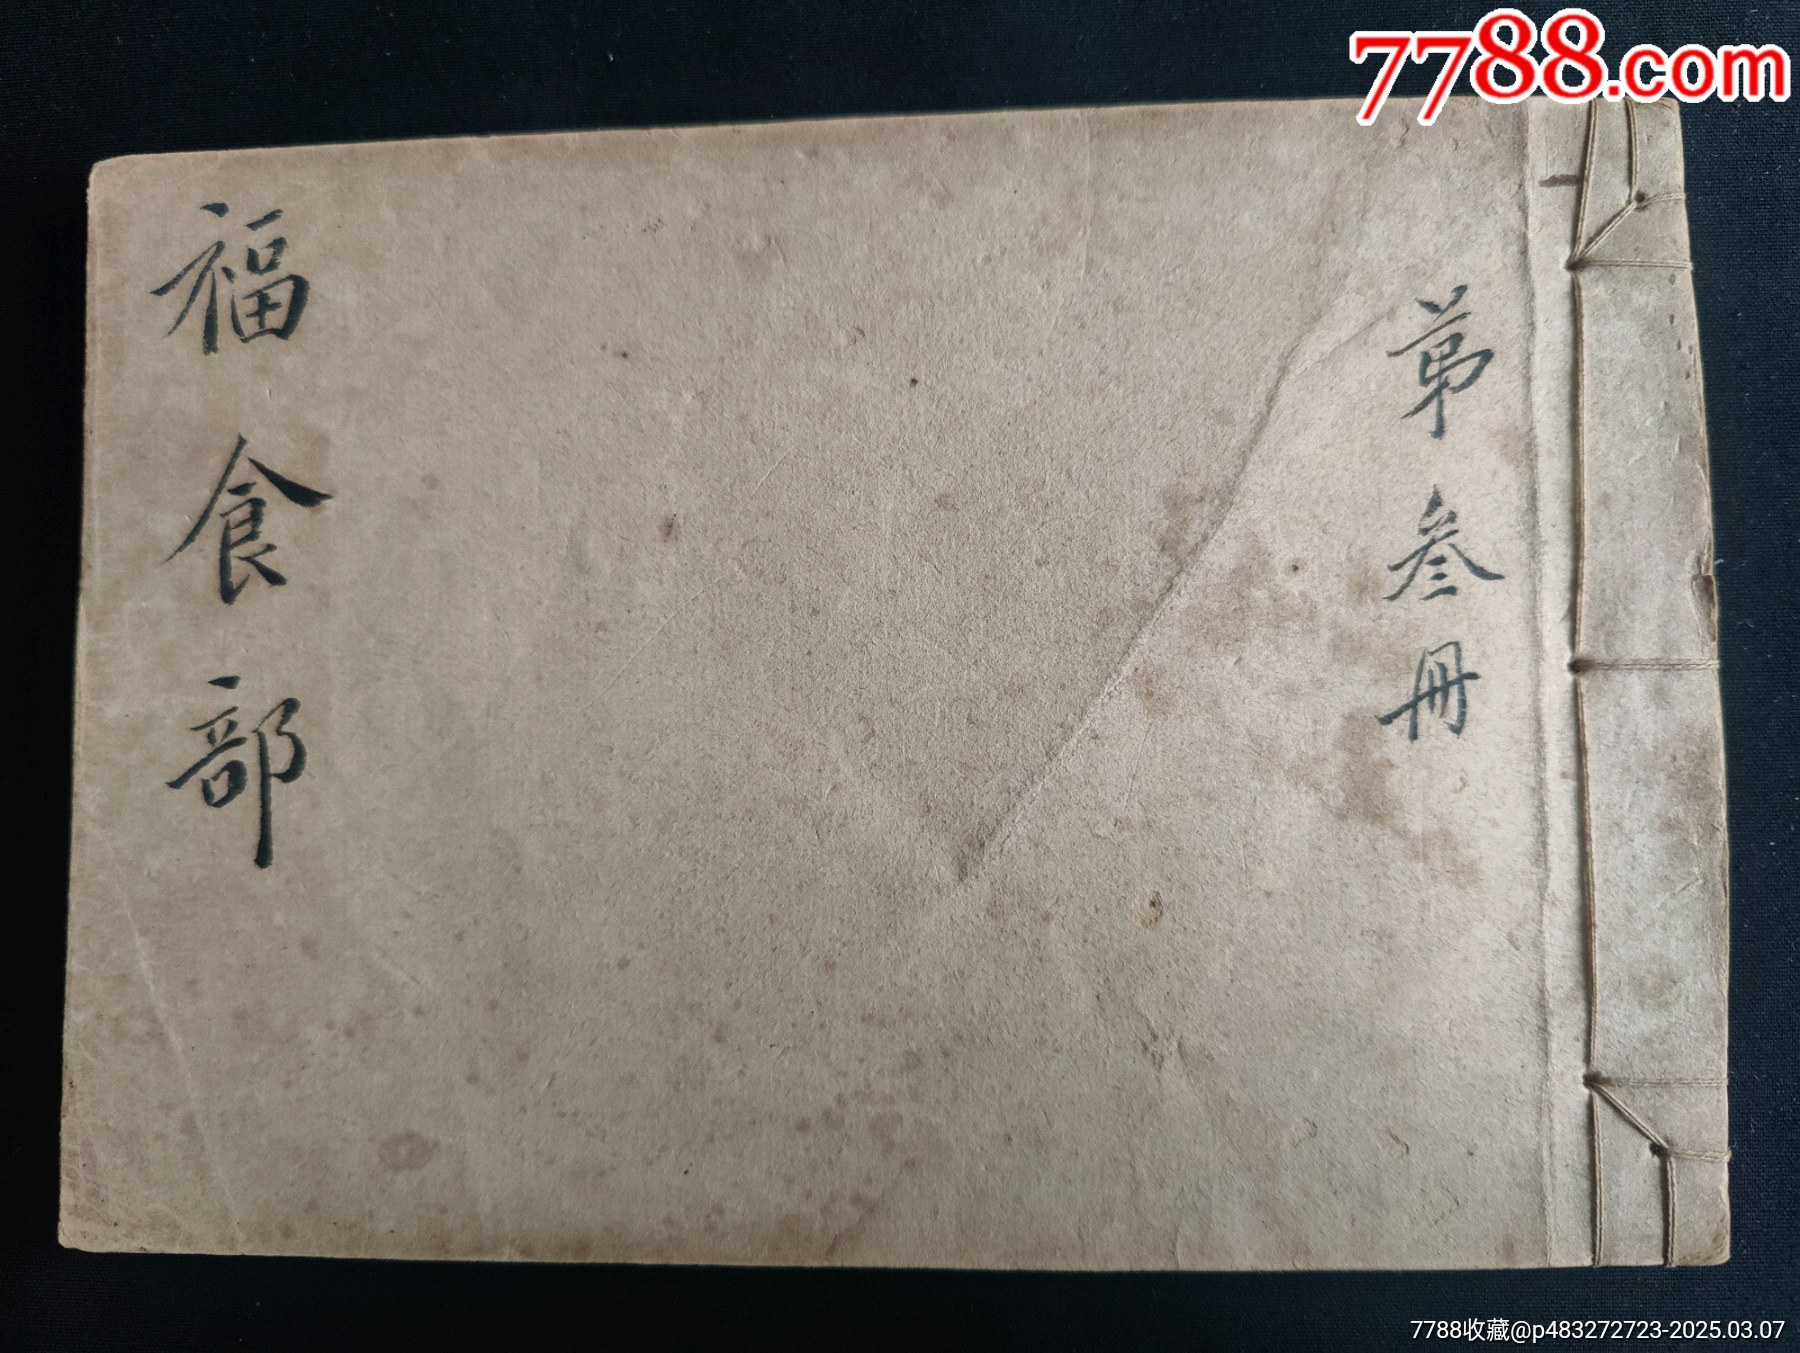 7788.com
第叁冊
福食部
7788收藏@p483272723-2025.03.07